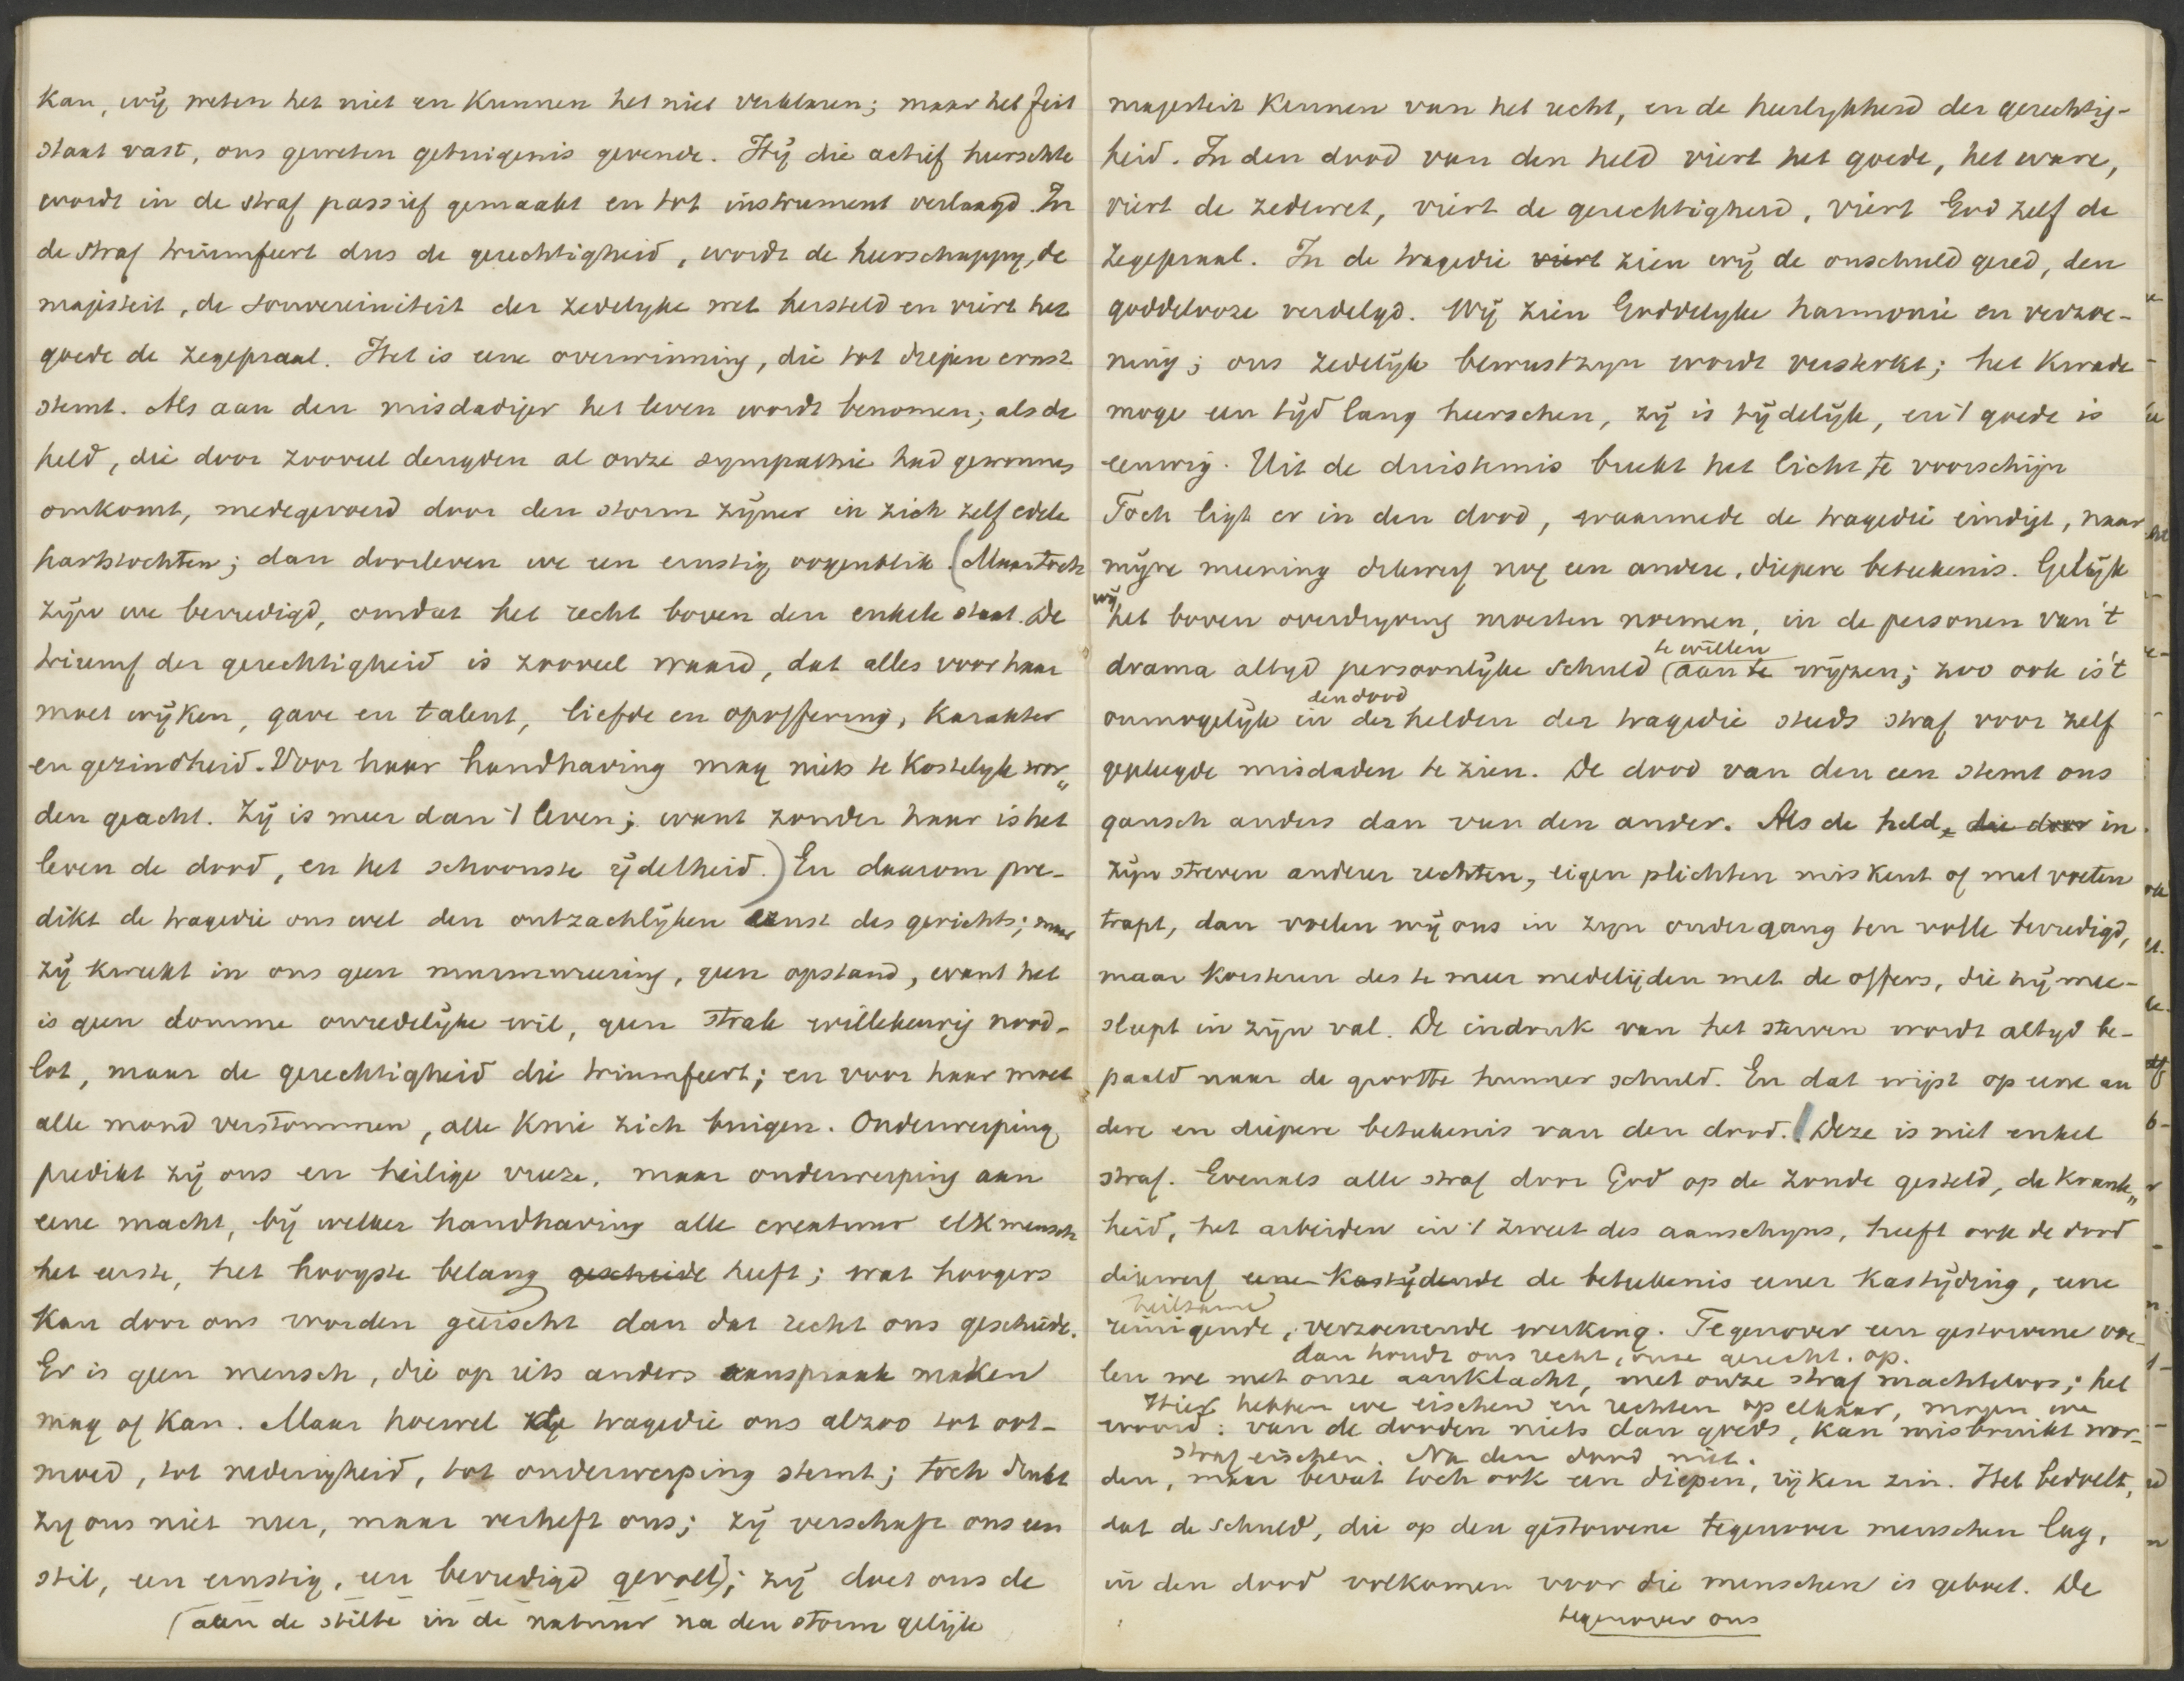 kan, wij weten het niet en kunnen het niet verklaren; maar het feit
staat vast, ons geweten getuigenis gevende. Hij die actief heerschte
wordt in de straf passief gemaakt en tot instrument verlaagd. In
de straf triumfeert dus de gerechtigheid, wordt de heerschappy, de
majesteit, de souvereiniteit der zedelyke wet hersteld en viert het
goede de zegepraal. Het is eene overwinning, die tot diepen ernst
stemt. Als aan den misdadiger het leven wordt benomen; als de
held, die door zooveel deugden al onze sympathie had gewonnen
omkomt, medegevoerd door den storm zijner in zich zelf edele
hartstochten; dan doorleven we een ernstig oogenblik. (Maar toch
zijn we bevredigd, omdat het recht boven den enkele staat. De
triumf der gerechtigheid is zooveel waard, dat alles voor haar
moet wijken, gave en talent, liefde en opoffering, karakter
en gezindheid. Voor haar handhaving mag niets te kostelyk wor„
den geacht. Zij is meer dan 't leven; want zonder haar is het
leven de dood, en het schoonste ijdelheid.) En daarom pre-
dikt de tragedie ons wel den ontzachlijken ernst des gerichts; maar
zij kweekt in ons geen murmureering, geen opstand, want het
is geen domme onredelijke wil, geen strak willekeurig nood-
lot, maar de gerechtigheid die triumfeert; en voor haar moet
alle mond verstommen, alle knie zich buigen. Onderwerping
predikt zij ons en heilige vreeze, maar onderwerping aan
eene macht, bij welker handhaving alle creatuur elk mensch
het eerste, het hoogste belang geschiede heeft; wat hoogers
kan door ons worden geëischt dan dat recht ons geschiede.
Er is geen mensch, die op iets anders aanspraak maken
mag of kan. Maar hoewel de tragedie ons alzoo tot oot-
moed, tot nederigheid, tot onderwerping stemt; toch drukt
zy ons niet neer, maar verheft ons; zij verschaft ons een
stil, een ernstig, een bevredigd gevoel); zij doet ons de
(aan de stilte in de natuur na den storm gelijk
majesteit kennen van het recht, en de heerlykheid der gerechtig-
heid. In den dood van den held viert het goede, het ware,
viert de zedewet, viert de gerechtigheid, viert God zelf de
zegepraal. In de tragedie viert zien wij de onschuld gered, den
goddelooze verdelgd. Wij zien Goddelyke harmonie en verzoe-
ning; ons zedelijk bewustzyn wordt versterkt; het kwade
moge een tijd lang heerschen, zij is tijdelijk, en 't goede is
eeuwig. Uit de duisternis breekt het licht te voorschijn
Toch ligt er in den dood, waarmede de tragedie eindigt, naar
mijne meening dikwerf nog een andere, diepere beteekenis. Gelijk
wij
het boven overdryving moesten noemen, in de personen van 't
te willen
drama altyd persoonlijke schuld (aan te wijzen; zoo ook is 't
den dood
onmogelijk in der helden der tragedie steeds straf voor zelf
gepleegde misdaden te zien. De dood van den een stemt ons
gansch anders dan van den ander. Als de held, die door in
zijn streven anderer rechten, eigen plichten miskent of met voeten
trapt, dan voelen wij ons in zyn ondergang ten volle bevredigd,
maar koesteren des te meer medelijden met de offers, die hij mee-
sleept in zijn val. De indruk van het sterven wordt altyd be-
paald naar de grootte hunner schuld. En dat wijst op eene an
dere en diepere beteekenis van den dood. Deze is niet enkel
straf. Evenals alle straf door God op de zonde gesteld, de krank„
heid, het arbeiden in 't zweet des aanschyns, heeft ook de dood
dikwerf eene kastijdende de beteekenis eener kastijding, eene
heilzame
reinigende, verzoenende werking. Tegenover een gestorvene voe-
dan houdt ons recht, onze gerecht. op.
len we met onze aanklacht, met onze straf machteloos; het
Hier hebben we eischen en rechten op elkaar, mogen we
woord: van de dooden niets dan goeds, kan misbruikt wor-
straf eischen. Na den dood niet.
den, maar bevat toch ook een diepen, rijken zin. Het bedoelt,
dat de schuld, die op den gestorvene tegenover menschen lag,
in den dood volkomen voor die menschen is geboet. De
tegenover ons